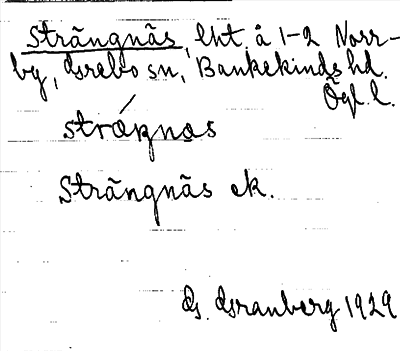 Strängnäs, lht. å 1-2 Norr-
by, Grebo sn, Bankekinds hd.
Ögl. l.
stráŋnas
Strängnäs ek.
G. Granberg 1929